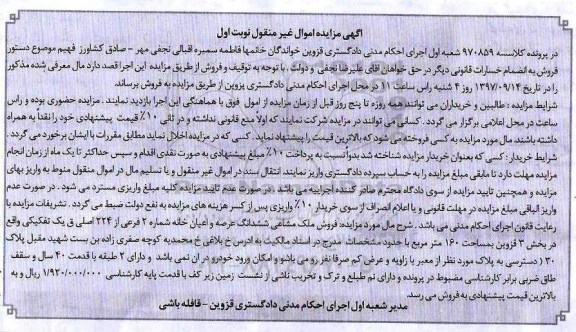 آگهی مزایده اموال غیر منقول نوبت اول
در پرونده کلاسه ۹۷۰۸۵۹ شعبه اول اجرای احکام مدنی دادگستری قزوین خواندگان خانمها فاطمه سمیره اقبالی نجفی مهر - صادق کشاورز فهیم موضوع دستور
فروش به انضمام خسارات قانونی دیگر در حق خواهان آقای علیرضا نجفی و دولت ، با توجه به توقیف و فروش از طریق مزایده این اجرا قصد دارد مال معرفی شده مذکور
را در تاریخ ۱۳۹۷/۰۹/۱۴ روز ۴ شنبه راس ساعت ۱۱ در محل اجرای احکام مدنی دادگستری قزوین از طریق مزایده به فروش برساند.
شرایط مزایده : طالبین و خریداران می توانند همه روزه تا پنج روز قبل از زمان مزایده از اموال فوق با هماهنگی این اجرا بازدید نمایند . مزایده حضوری بوده و راس
ساعت در محل اعلامی برگزار می گردد . کسانی می توانند در مزایده شرکت نمایند که اولاً منع قانونی نداشته و در ثانی ۱۰٪ قیمت پیشنهادی خود را نقداً به همراه
داشته باشند مال مورد مزایده به کسی فروخته می شود که بالاترین قیمت را پیشنهاد نماید . کسی که در مزایده اخلال نماید مطابق مقررات با ایشان برخورد می گردد .
شرایط خریدار : کسی که بعنوان خریدار مزایده شناخته شد بدواً نسبت به پرداخت ۱۰٪ مبلغ پیشنهادی به صورت نقدی اقدام و سپس حداکثر تا یک ماه از زمان انجام
مزایده مهلت دارد تا مابقی مبلغ مزایده را به حساب سپرده دادگستری واریز نمایند انتقال سند در اموال غیر منقول و یا تسلیم مال در اموال منقول منوط به واریز بهای
مزایده و همچنین تایید مزایده از سوی دادگاه محترم صادر کننده اجراییه می باشد . در صورت عدم تایید مزایده کلیه مبالغ واریزی مسترد می شود . در صورت عدم
واریز الباقی مبلغ مزایده در مهلت قانونی و یا اعلام انصراف از سوی خریدار ۱۰٪ واریزی پس از کسر هزینه های مزایده به نفع دولت ضبط می گردد . تشریفات مزایده با
رعایت قانون اجرای احکام مدنی می باشد . شرح مال مورد مزایده: فروش ملک مشاعی ششدانگ عرصه و اعیان خانه شماره ۲ فرعی از ۲۲۴ اصلی ق یک تفکیکی واقع
در بخش ۳ قزوین بمساحت ۱۶۰ متر مربع با حدود مشخصات مندرج در اسناد مالکیت به آدرس خ بلاغی خ محمدیه کوچه صفری زاده بن بست شهید مقبل پلاک
۳۰ ( دسترسی به پلاک مورد نظر از معبر با زاویه و عرض کم صرفا نفر رو می باشد و امکان ورود خودرو در آن نمی باشد و دارای ۲ طبقه با قدمت ۴۰ سال و سقف
طاق ضربی برابر کارشناسی مضبوط در پرونده و دارای نم طبلع و ترک و تخریب ناشی از نشست زمین زیر کف با قدمت پایه کارشناسی ۱/۹۲۰/۰۰۰/۰۰۰ ریال و به
بالاترین قیمت پیشنهادی به فروش می رسد.
مدیر شعبه اول اجرای احکام مدنی دادگستری قزوین - قافله باشی